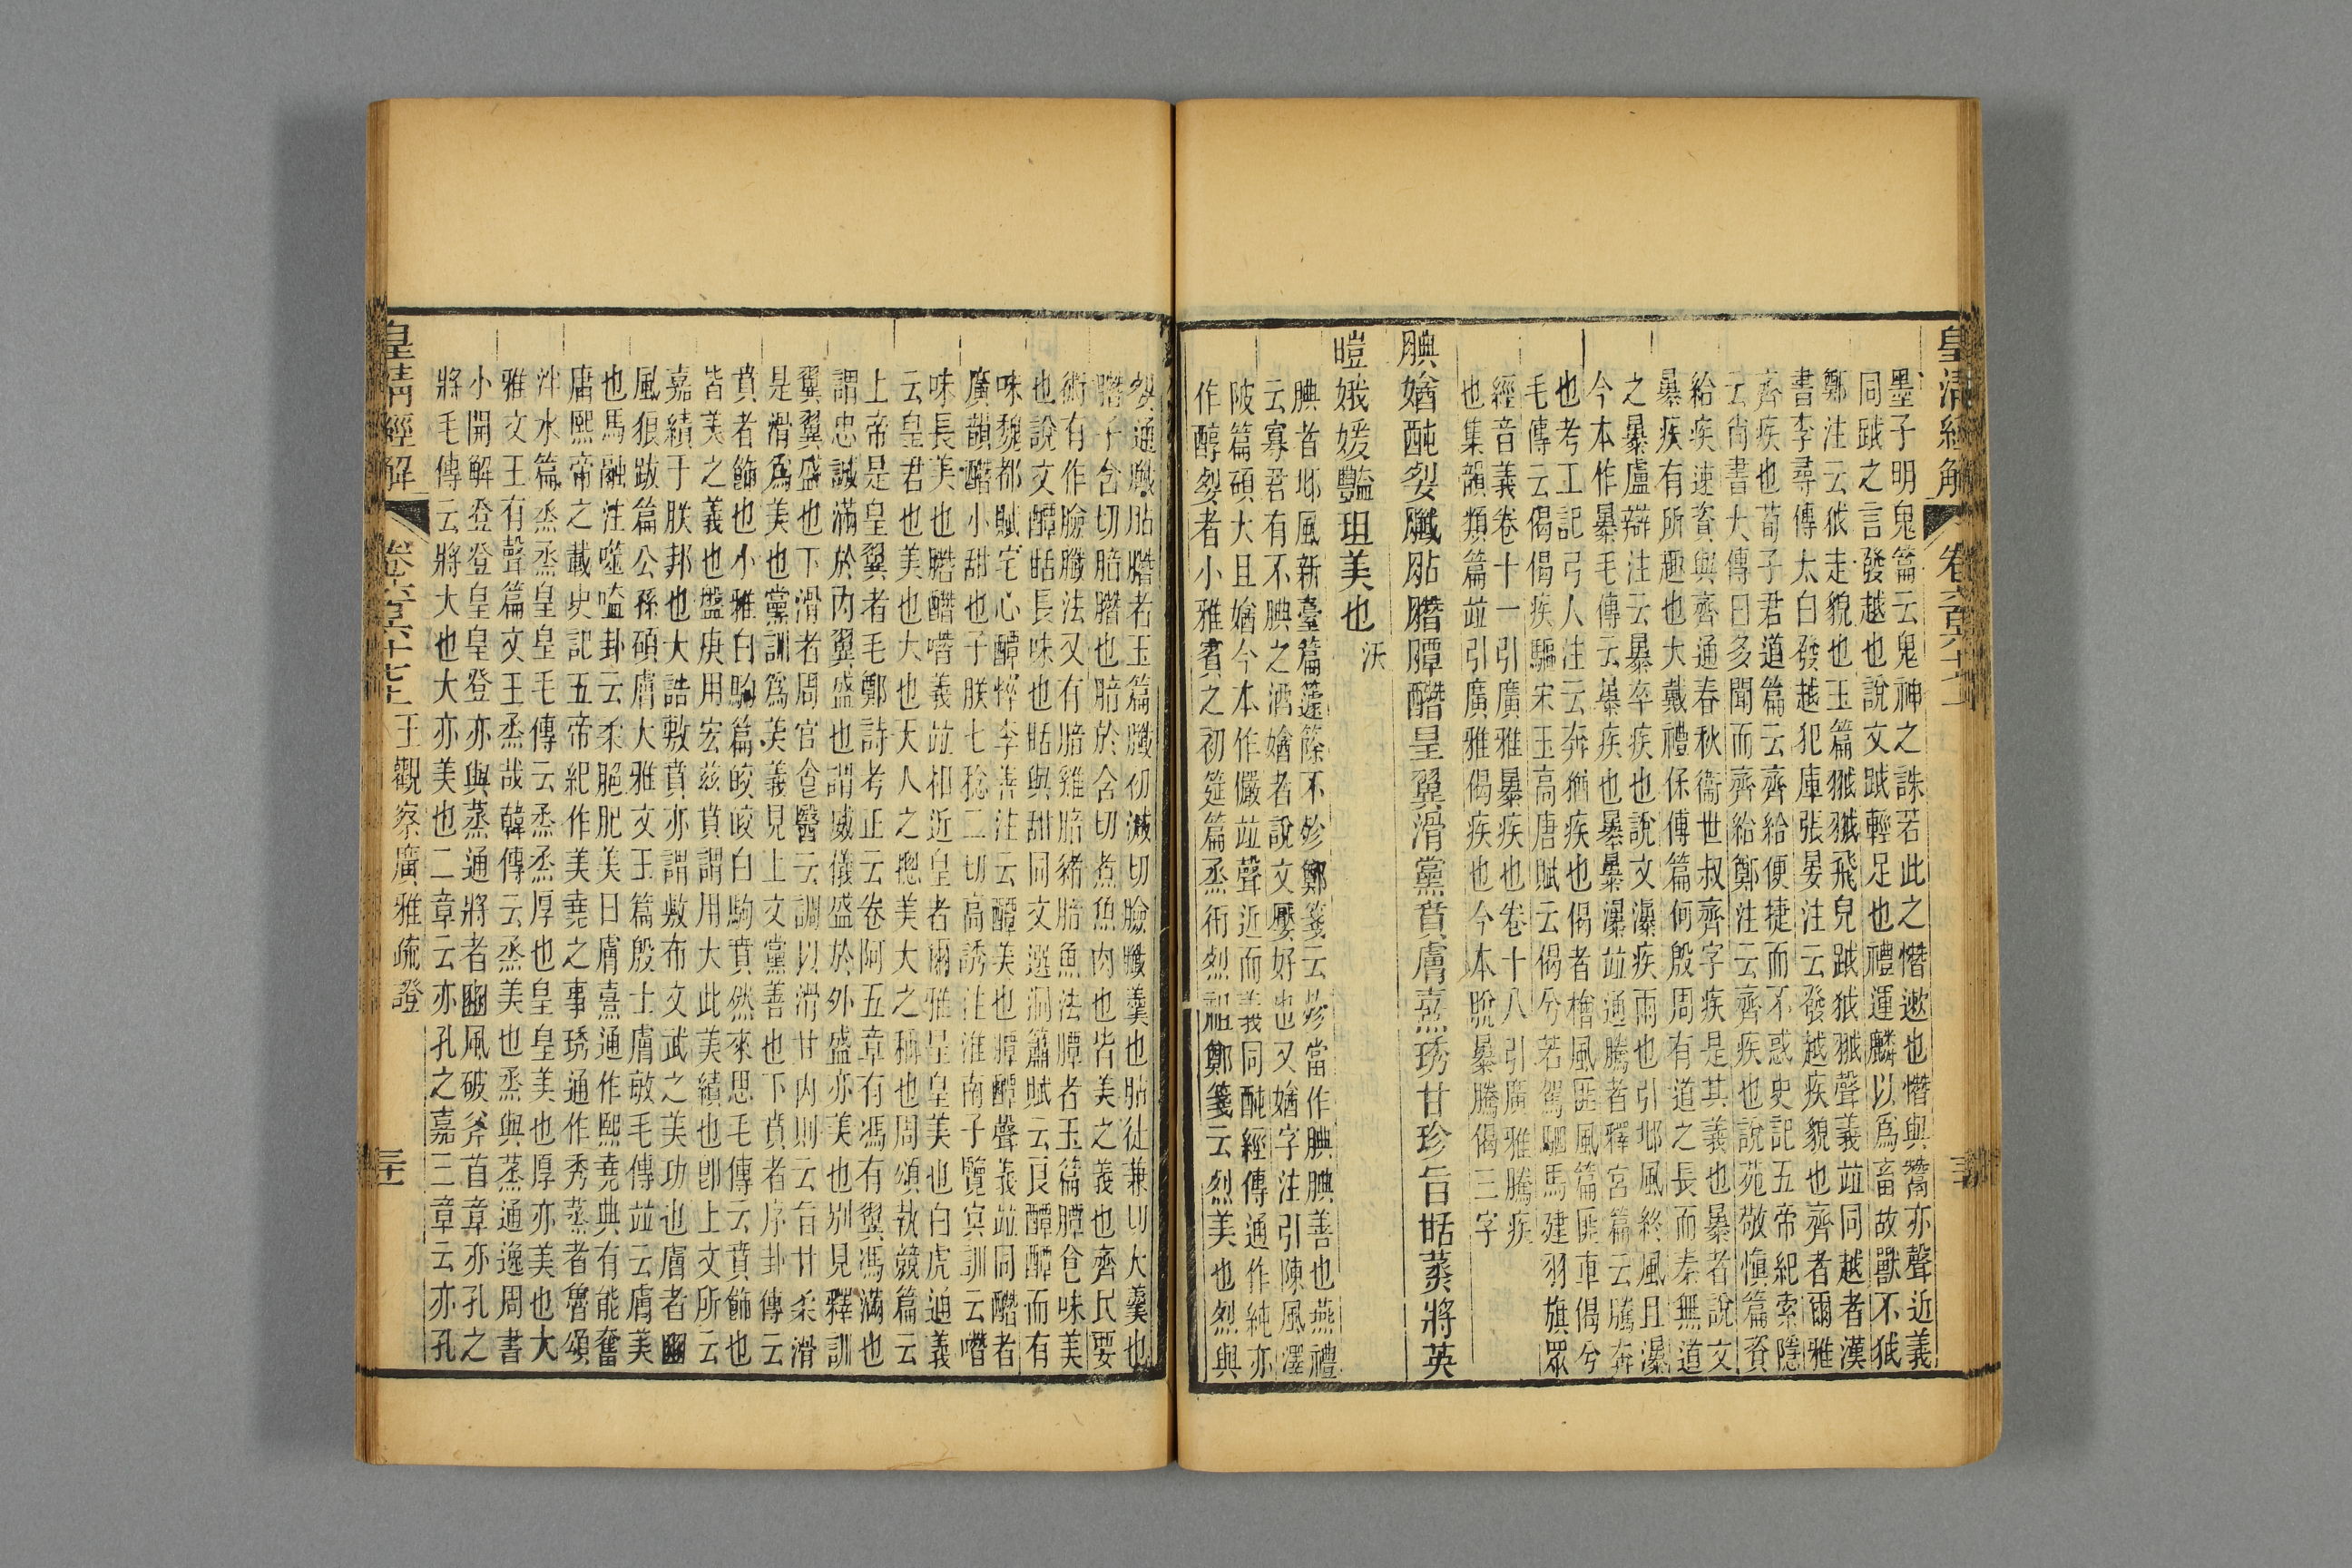 皇清經解
墨子明鬼篇云鬼神之誅若此之憯遫也憯與簪亦聲近義
同跋之言發越也說文跋輕足也禮運麟以爲畜故獸不狘
鄭注云狘走貌也玉篇翐飛皃跋狘翐聲義竝同越者漢
書李尋傳太白發越犯庫張晏注云發越疾貌也齊者爾雅
齊疾也荀子君道篇云齊給便捷而不惑史記五帝紀索隱
云尙書大傳曰多聞而齊給鄭注云齊疾也說苑敬愼篇資
給疾速資與齊通春秋衞世叔齊字疾是其義也暴者說文
暴疾有所趣也大戴禮保傅篇何殷周有道之長而秦無道
之暴盧辯注云暴卒疾也說文瀑疾雨也引邶風終風且瀑
今本作暴毛傳云暴疾也暴瀑竝通騰者釋宮篇云騰奔
也考工記弓人注云奔猶疾也偈者檜風匪風篇匪車偈兮
毛傳云偈偈疾驅宋玉高唐賦云偈兮若駕駟馬建羽旗眾
經音義卷十一引廣雅暴疾也卷十八引廣雅騰疾
也集韻類篇竝引廣雅偈疾也今本脫暴騰偈三字
腆媨酏㛃膱胋䐶膻醰䤘皇翼滑黨賁膚熹琇甘珍旨甛蒸將英
暟娥媛豔珇美也沃
腆者邶風新臺篇籧篨不殄鄭箋云殄當作腆腆善也燕禮
云寡君有不腆之酒媨者說文嬮好也又媨字注引陳風澤
陂篇碩大且媨今本作儼竝聲近而義同酏經傳通作純亦
作醇㛃者小雅賓之初筵篇烝衎烈祖鄭箋云烈美也烈與
㛃通膱胋䐶者玉篇膱初減切臉膱羹也胋徒兼切大羹也
䐶子含切腤䐶也腤於含切煮魚肉也皆美之義也齊民要
術有作臉膱法又有腤雞腤豬腤魚法膻者玉篇膻皀味美
也說文醰甛長味也甛與甜同文選洞簫賦云良醰醰而有
味魏都賦宅心醰粹李善注云醰美也膻醰聲義竝同䤘者
廣韻䤘小甜也子朕七稔二切高誘注淮南子覽冥訓云噆
味長美也䐶䤘噆義竝相近皇者爾雅皇皇美也白虎通義
云皇君也美也大也天人之摠美大之稱也周頌執競篇云
上帝是皇翼者毛鄭詩考正云卷阿五章有馮有翼馮滿也
謂忠誠滿於內翼盛也謂威儀盛於外盛亦美也別見釋訓
翼翼盛也下滑者周官食醫云調以滑甘內則云旨甘柔滑
是滑爲美也黨訓爲美義見上文黨善也下賁者序卦傳云
賁者飾也小雅白駒篇皎皎白駒賁然來思毛傳云賁飾也
皆美之義也盤庚用宏茲賁謂用大此美績也卽上文所云
嘉績于朕邦也大誥敷賁亦謂敷布文武之美功也膚者豳
風狼跋篇公孫碩膚大雅文王篇殷士膚敏毛傳竝云膚美
也馬融注噬嗑卦云柔脆肥美曰膚熹通作熙堯典有能奮
庸熙帝之載史記五帝紀作美堯之事琇通作秀蒸者魯頌
泮水篇烝烝皇皇毛傳云烝烝厚也皇皇美也厚亦美也大
雅文王有聲篇文王烝哉韓傳云烝美也烝與蒸通逸周書
小開解登登皇皇登亦與蒸通將者豳風破斧首章亦孔之
將毛傳云將大也大亦美也二章云亦孔之嘉三章云亦孔
皇清經解
王觀察廣雅疏證